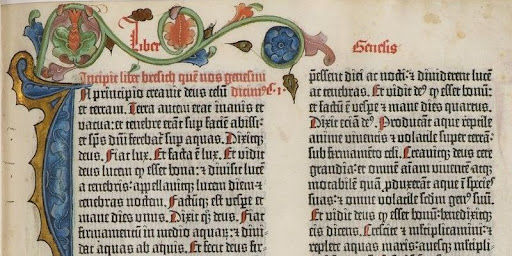 Liber
Genesis
Incipit liber bresith quē nos genesim
In principio creavit deus celū dicim⁹
et terram. Terra autem erat inanis et
vacua: et tenebre erāt sup faciē abissi:
et sp̄s dn̄i ferebat̄ sup aquas. Dixitq̄
deus. Fiat lux. Et facta ē lux. Et vidit
deus lucem q̄ esset bona: et divisit lucē
a tenebris: appellavitq̄ lucem diem et
tenebras noctem. Factūq̄ est vespe et
mane dies unus. Dixit q̄ deus. Fiat
firmamentū in medio aquarū: et divi-
dat aquas ab aquis. Et fecit deus fir-
pessent diei ac nocti: et dividerent lucē
ac tenebras. Et vidit de⁹ q̄ esset bonū:
et factū ē vespe et mane dies quartus.
Dixit eciā de⁹. Producant aque reptile
anime viventis et volatile super terrā:
sub firmamēto celi. Creavitq̄ deus cete
grandia: et omnē aīam viventē atq̄
motabilē quā pduxerāt aque ī species
suas: et omne volatile secdm gen⁹ suū.
Et vidit deus q̄ esset bonū: benedixitq̄
eis dicens. Crescite et mltiplicamini: et
replete aquas maris: avesq̄ mltipli-